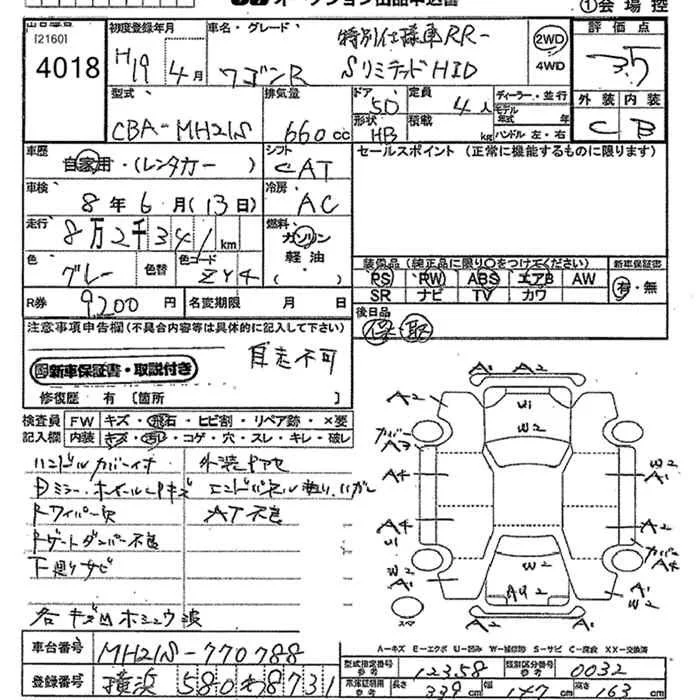 オークション出品申込書
①会場控
[2160]
4018
初度登録年月
H19年4月
車名・グレード
ワゴンR
特別仕様車RR-
SリミテッドHID
2WD
4WD
評価点
3.5
型式
CBA-MH21S
排気量
660cc
ドア
5D
形状
HB
定員
4人
積載
kg
ディーラー・並行
モデル年式 年
ハンドル 左・右
外装 内装
C B
車歴
自家用・(レンタカー)
シフト
CAT
セールスポイント (正常に機能するものに限ります)
車検
8年6月(13日)
冷房
AC
走行
8万2千341km
燃料
ガソリン
軽油
( )
色
グレー
色替
色コード
ZY4
装備品 (純正品に限り○をつけてください)
PS PW ABS エアB AW
SR ナビ TV カワ
新車保証書
有・無
R券
9200円
名変期限 月 日
後日品
保・取
注意事項申告欄(不具合内容等は具体的に記入して下さい)
新車保証書・取説付き
自走不可
修復歴 有〔箇所 〕
検査員記入欄
FW キズ・飛石・ヒビ割・リペア跡・×要
内装 キズ・汚れ・コゲ・穴・スレ・キレ・破レ
ハンドルカバーイオ
外装ヤケ
Dミラー・ホイールCPキズ
Rワイパー欠
AT不良
Rゲートダンパー不良
下廻りサビ
各キズUホシュウ波
A1 A2
A2 U1 A1
カバー
A3 W2 A2
A4 A4
A4 A2
U1 カバー A4
W2 A1 W2 A1
AU2 W2
A2 A2
スペア
A-キズ E-エクボ U-凹み W-補修跡 S-サビ C-腐食 XX-交換済
車台番号
MH21S-770788
登録番号
横浜580わ8731
型式指定番号
参考
12358
類別区分番号
参考
0032
車体証明
参考
長さ
339cm
幅
147cm
高さ
163cm